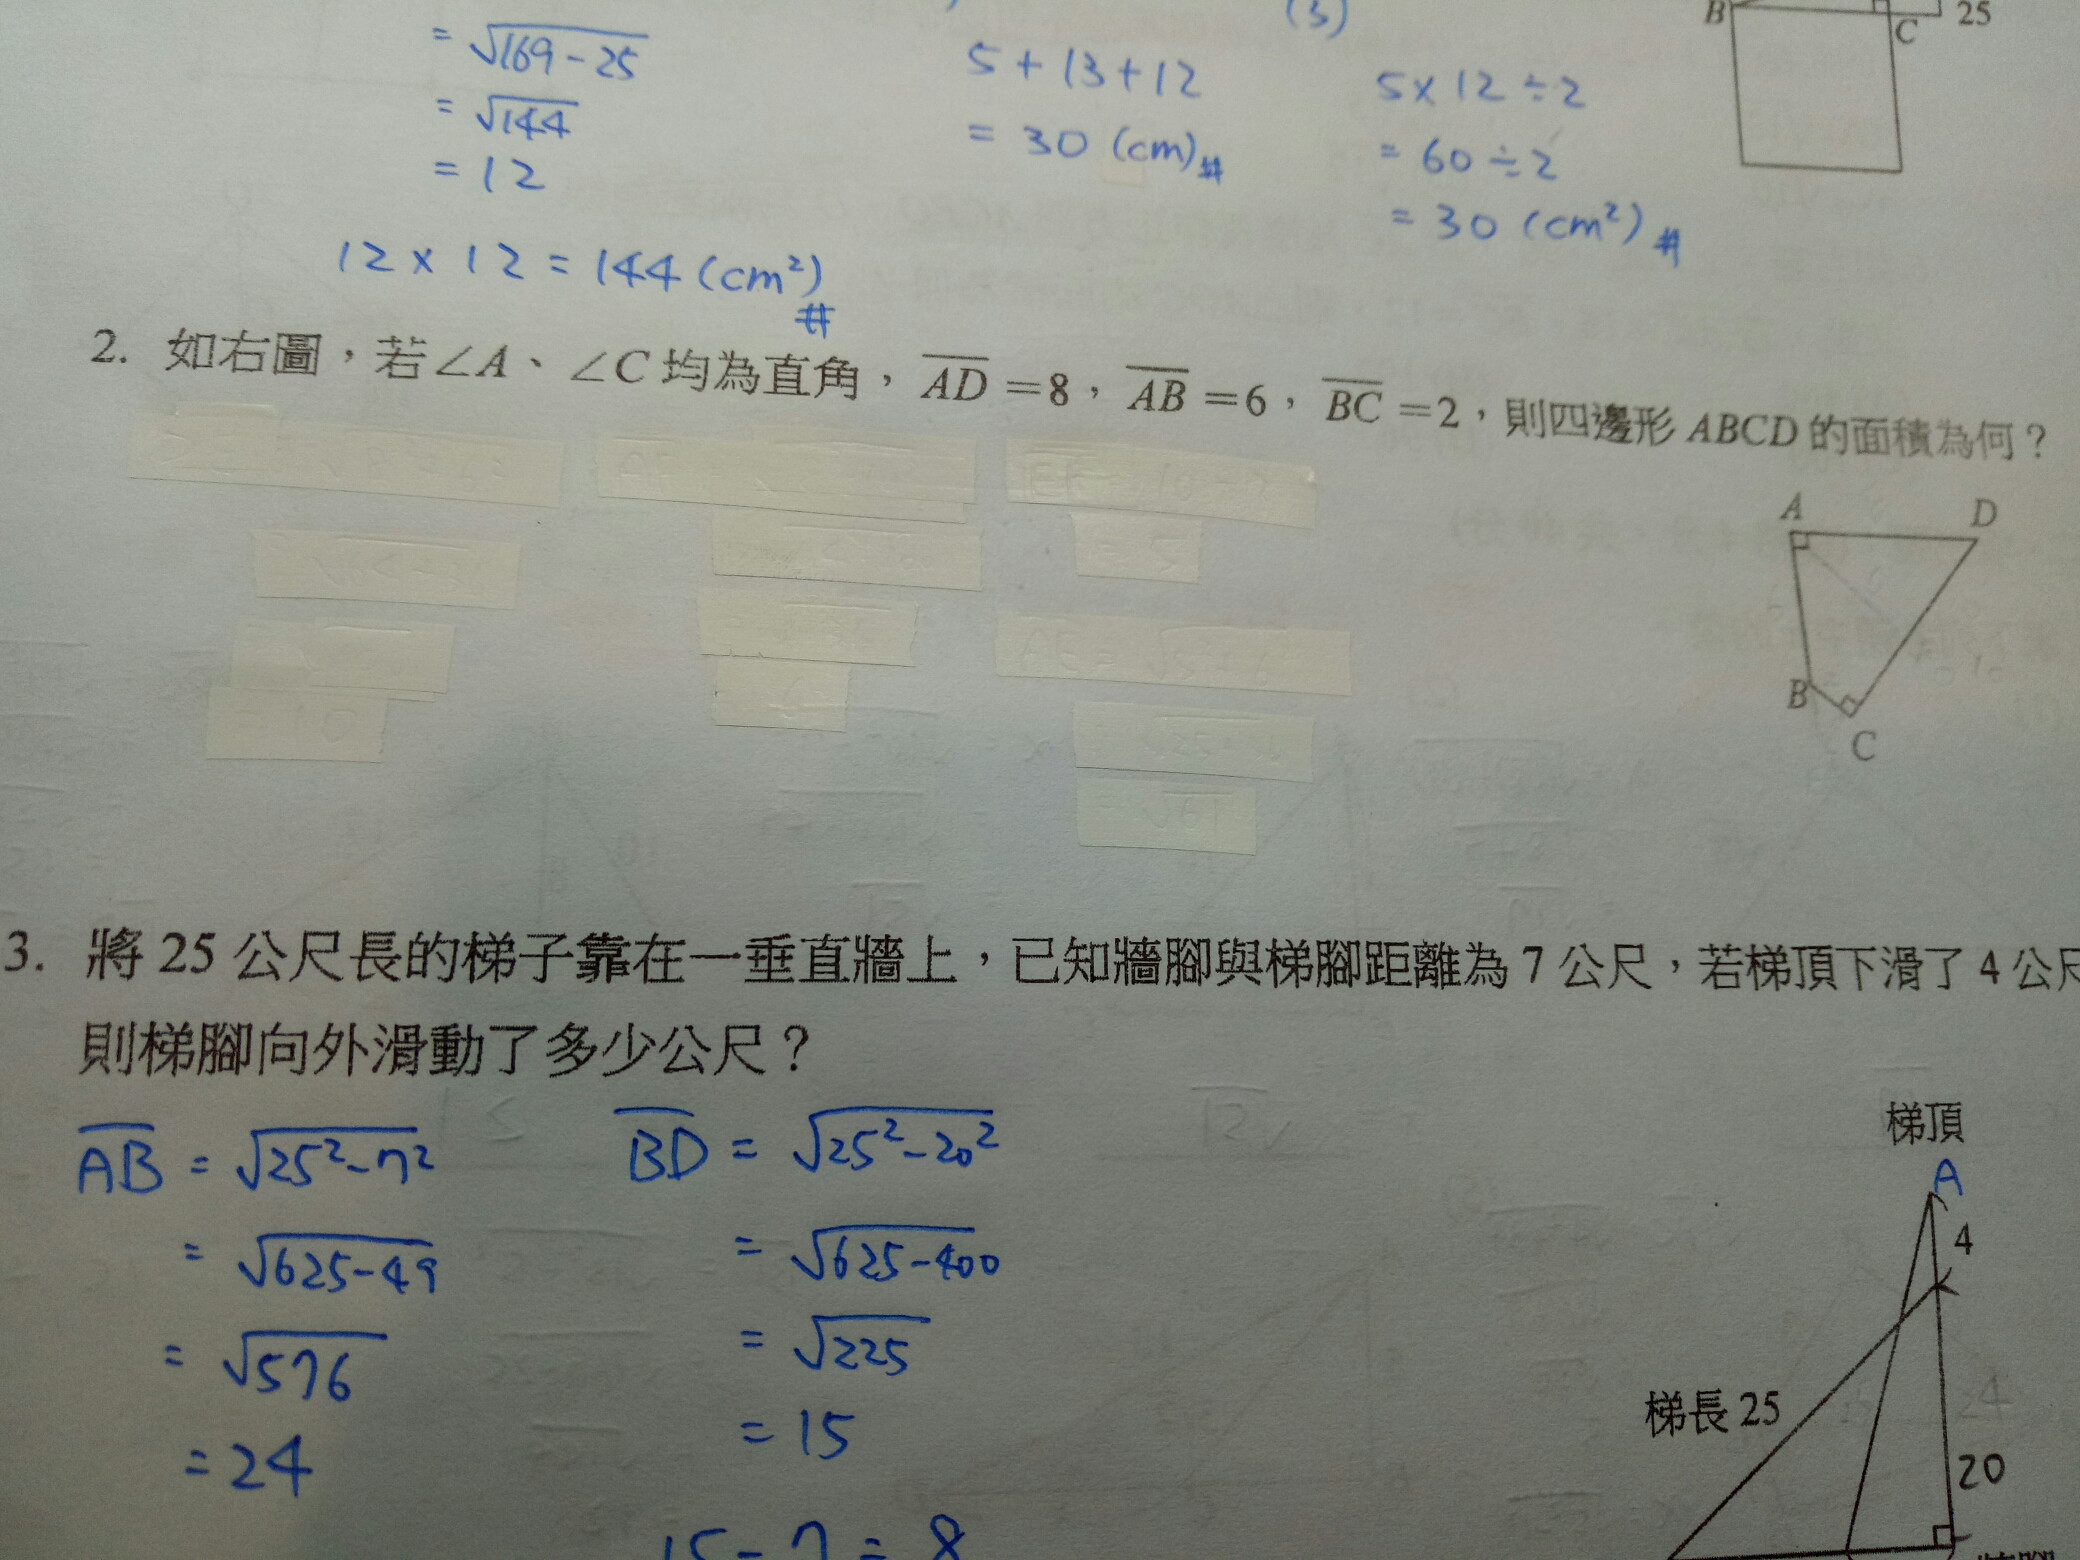 = √169-25
= √144
= 12
12 × 12 = 144 (cm²) #
5 + 13 + 12
= 30 (cm) #
(3)
5 × 12 ÷ 2
= 60 ÷ 2
= 30 (cm²) #
B
C
25
2. 如右圖，若∠A、∠C 均為直角，AD=8，AB=6，BC=2，則四邊形 ABCD 的面積為何？
A
D
B
C
3. 將 25 公尺長的梯子靠在一垂直牆上，已知牆腳與梯腳距離為 7 公尺，若梯頂下滑了 4 公尺
則梯腳向外滑動了多少公尺？
AB = √25²-7²
= √625-49
= √576
= 24
BD = √25²-20²
= √625-400
= √225
= 15
15 - 7 = 8
梯頂
A
4
梯長 25
20